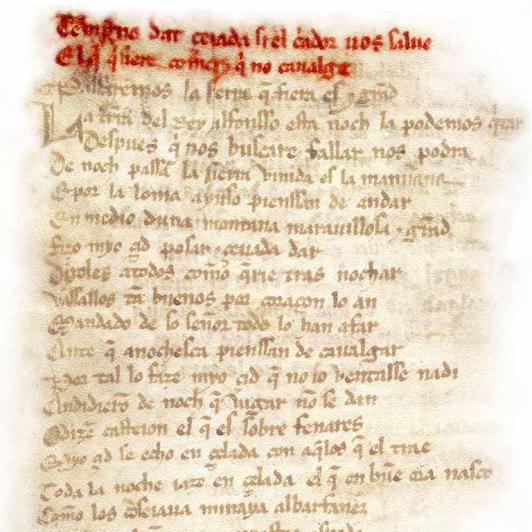 Temp͂no dat ceuada si el c̃ador uos salue
El q̃ q̃siere comer ⁊ q̃ no caualge
Passaremos la sierra q̃ fiera es ⁊ grãd
La trr̃a del Rey alfonsso esta noch la podemos quitar
Despues q̃ nos buscare fallar nos podra
De noch passã la sierra vinida es la mannana
E por la loma ayuso pienssan de andar
En medio duna montana marauillosa ⁊ grãd
Fizo myo çid posar ⁊ ceuada dar
Dixoles atodos commo q̃rie tras nochar
Vassallos tã buenos por coraçon lo an
Mandado de so señor todo lo han afar
Ante q̃ anochesca pienssan de caualgar
Por tal lo faze myo çid q̃ no lo ventasse nadi
Andidierõ de noch q̃ vagar no se dan
Odizẽ casteion el q̃ es sobre fenares
Myo çid se echo en çelada con aq̃los q̃ el trae
Toda la noche iaze en çelada el q̃ en buẽ ora nasco
Commo los conseiaua minaya albarfanez